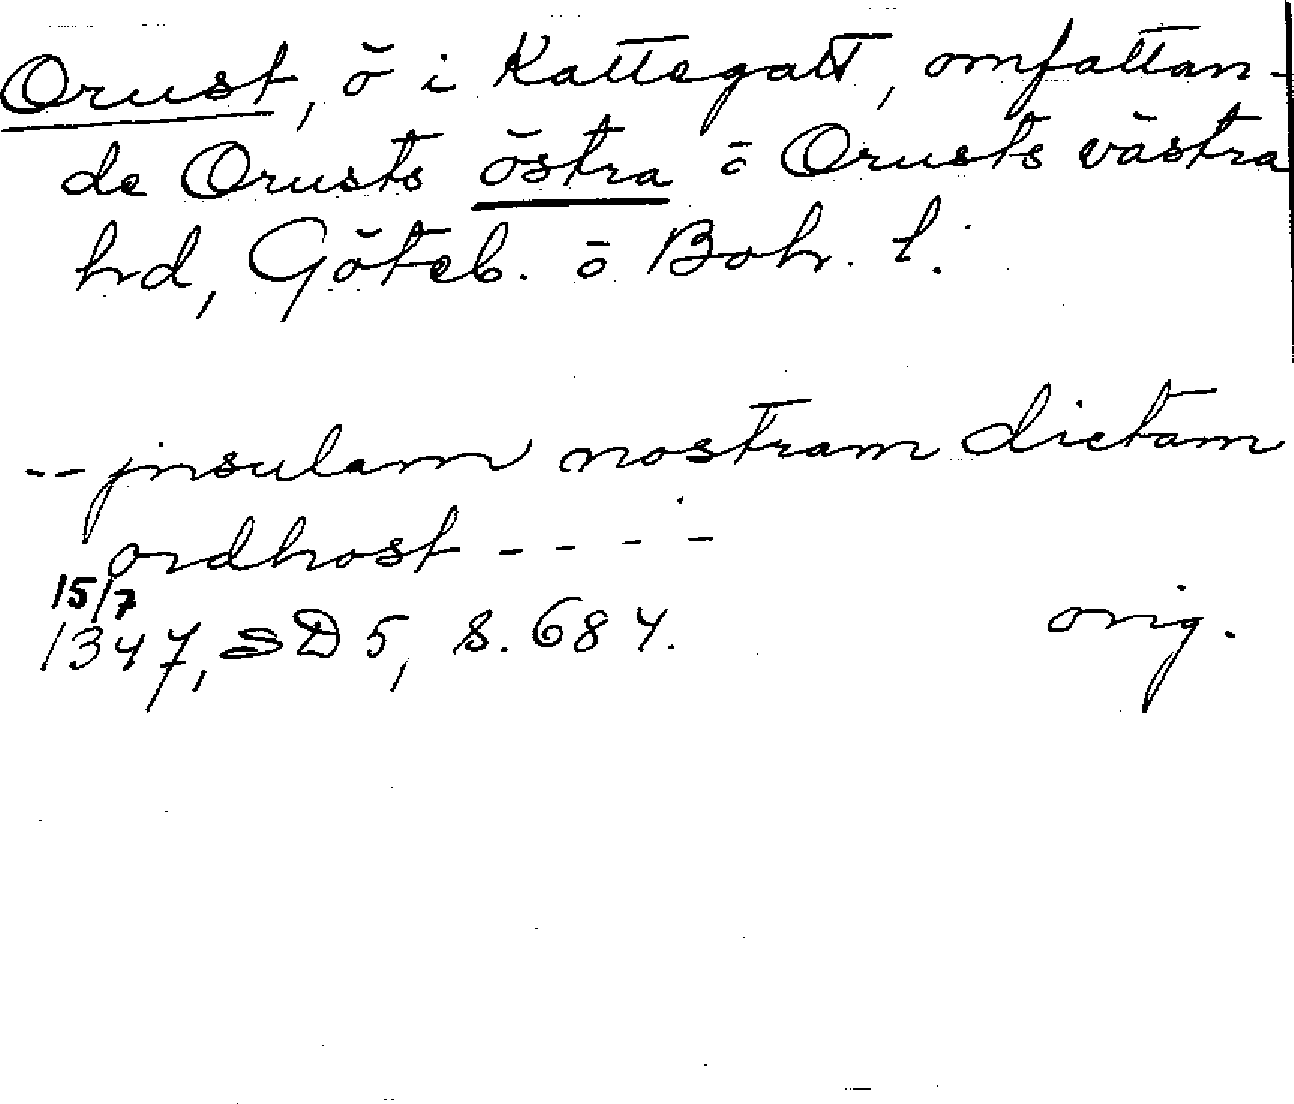 Orust, ö i Kattegatt, omfattan-
de Orusts östra o Orusts västra
hd, Göteb. o Boh. l.
-- jnsulam nostram dictam
ordhost ----
15/7
1347, SD 5, s. 684. orig.